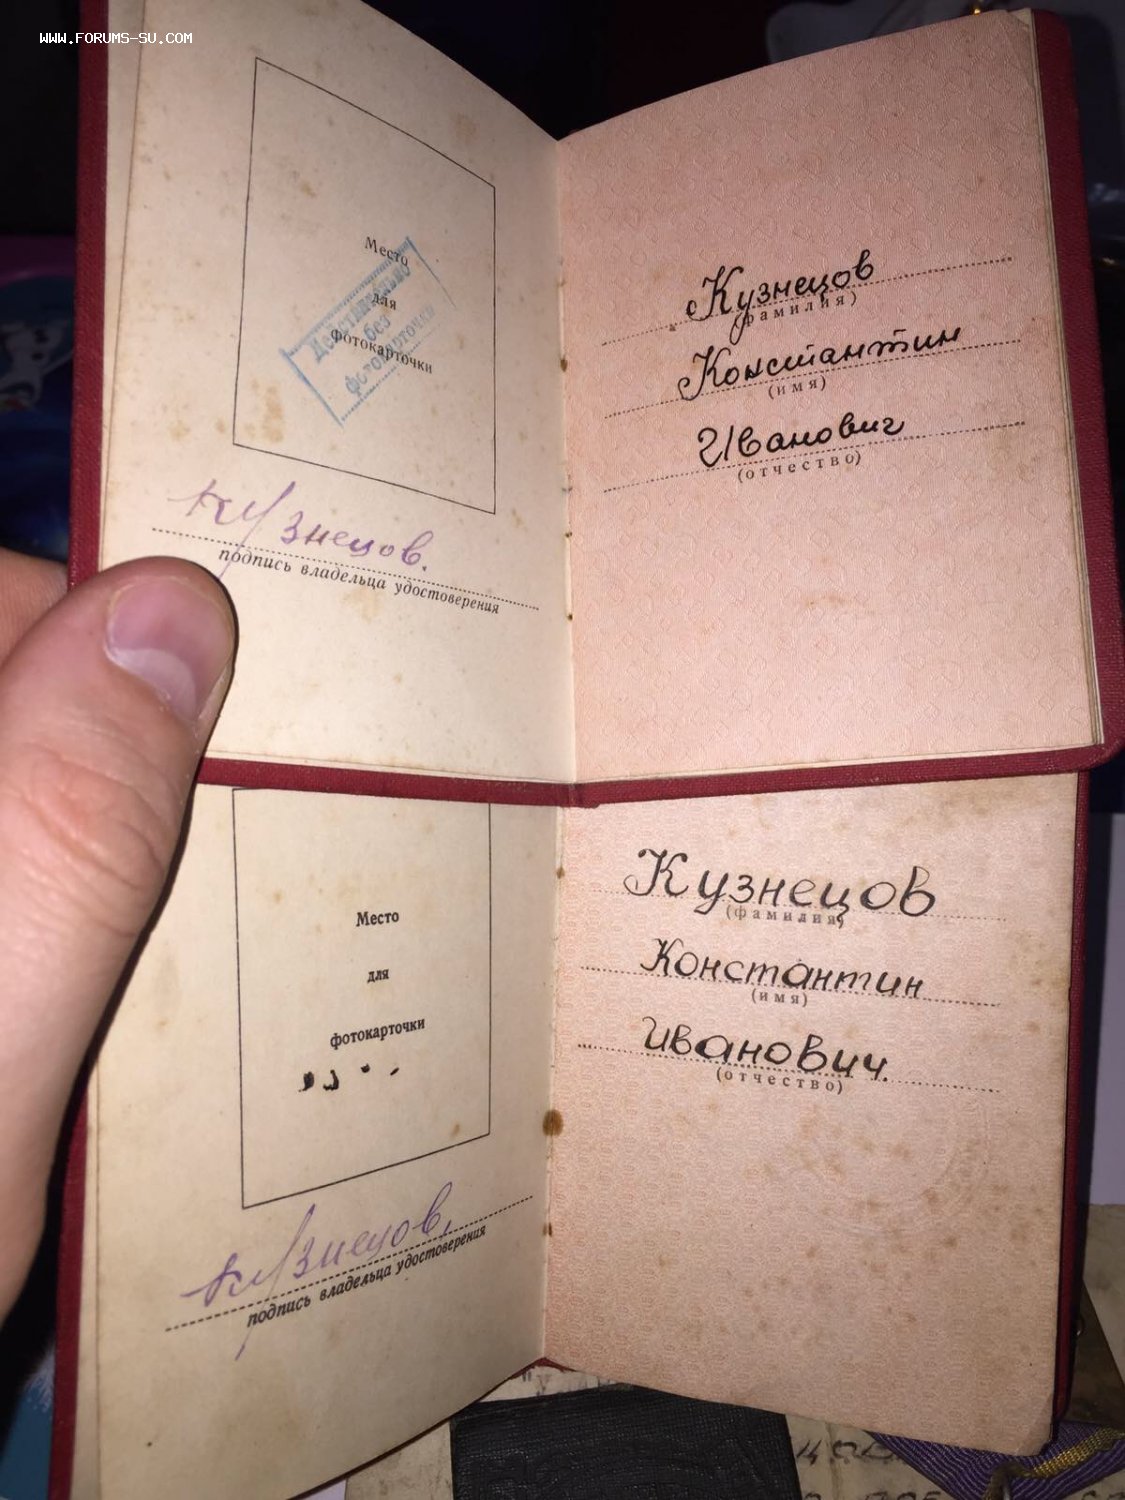 WWW.FORUMS-SU.COM
Место
для
фотокарточки
Действительно
без
фотокарточки
Кузнецов.
подпись владельца удостоверения
Кузнецов
(фамилия)
Константин
(имя)
Иванович
(отчество)
Место
для
фотокарточки
Кузнецов.
подпись владельца удостоверения
Кузнецов
(фамилия)
Константин
(имя)
Иванович.
(отчество)